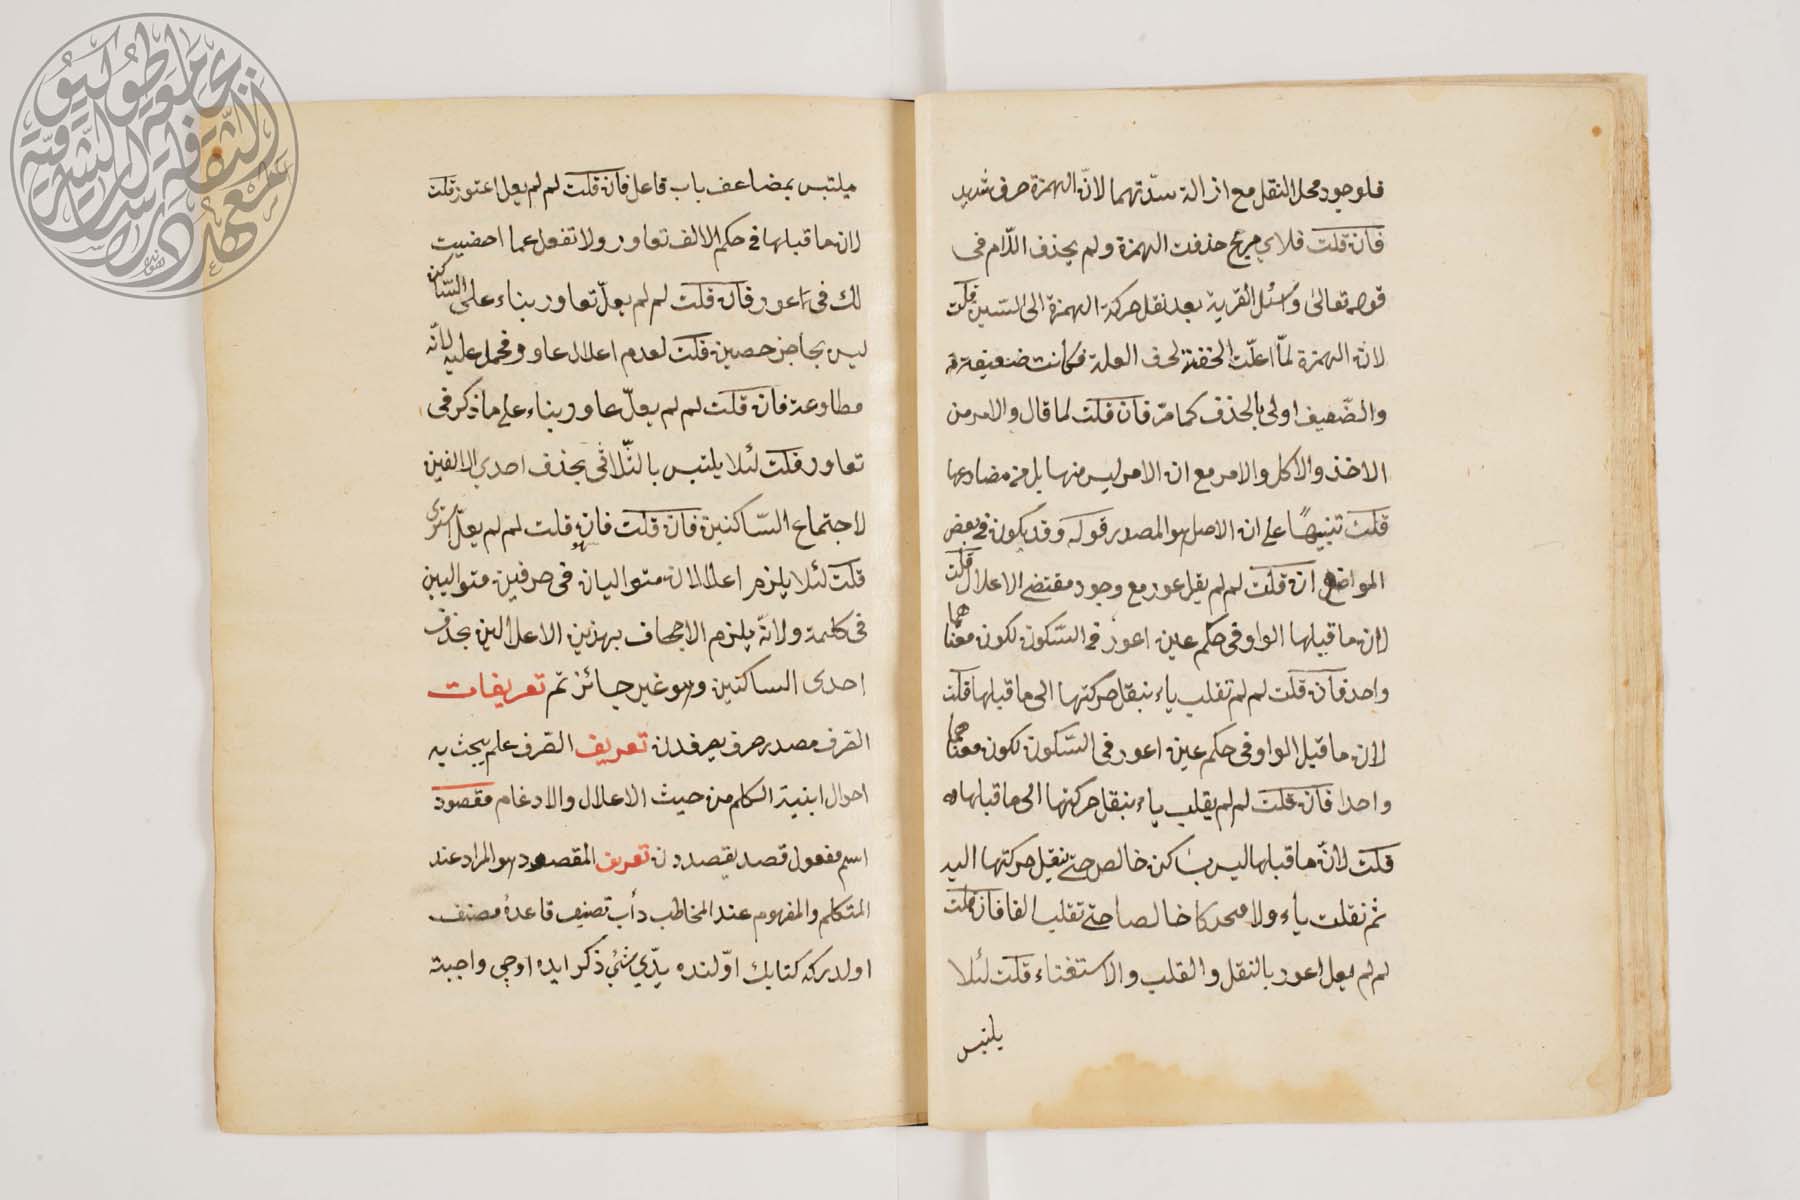 فلوجود محل النقل مع ازالة سدّتهما لانّ الهمزة حرف شديد
فان قلت فلاي مرجح حذفت الهمزة ولم يحذف اللام في
قوله تعالى وسئل القرية بعد نقل حركة الهمزة الى السّين قلت
لان الهمزة لمّا اعلّت الخفة لحرف العلة فكانت ضعيفة
والضّعيف اولى بالحذف كما مرّ فان قلت لما قال والامر من
الاخذ والاكل والامر مع ان الامر ليس منها بل من مضارعها
قلت تنبيهًا على ان الاصل هو المصدر قوله وقد يكون في بعض
المواضع ان قلت لم لم يقل عور مع وجود مقتضى الاعلال قلت
لان ما قبلها الواو في حكم عين اعور في السّكون لكون معناهما
واحد فان قلت لم لم تقلب ياء بنقل حركتها الى ما قبلها قلت
لان ما قبل الواو في حكم عين اعور في السّكون لكون معناهما
واحدا فان قلت لم لم يقلب ياء بنقل حركتها الى ما قبلها
قلت لانّ ما قبلها ليس بساكن خالص حتّى ينقل حركتها اليه
ثم نقلت ياء ولا محركا خالصا حتى تقلب الفا فان قلت
لم لم يعل اعور بالنقل والقلب والاستغناء قلت لئلا
يلتبس
ميلتبس بمضاعف باب فاعل فان قلت لم لم يعل اعتور قلت
لان ما قبلها في حكم الالف تعاور ولا تغفل عما احضيت
لك في اعور فان قلت لم لم يعلّ تعاور بناء على السّاكن
ليس بحاجز حصين قلت لعدم اعلال عاور فحمل عليه لانّه
مطاوعة فان قلت لم لم يعلّ عاور بناء على ما ذكر في
تعاور قلت لئلا يلتبس بالثّلاثي بحذف احدي الالفين
لاجتماع السّاكنين فان قلت فان قلت لم لم يعلّ استوى
قلت لئلا يلزم اعلالان متواليان في حرفين متواليين
في كلمة ولانّه يلزم الاجحاف بهذين الاعلالين بحذف
احدى الساكنين وهو غير جائز تم تعريفات
الصّرف مصدر صرف يصرفدن تعريف الصّرف علم يبحث به
احوال ابنية الكلم من حيث الاعلال والادغام مقصود
اسم مفعول قصد يقصددن تعريف المقصود هو المراد عند
المتكلم والمفهوم عند المخاطب دأب تصنيف قاعدهٔ مصنف
اولدركه كتابك اوّلنده يدّي شئ ذكر ايده اوچي واجبته